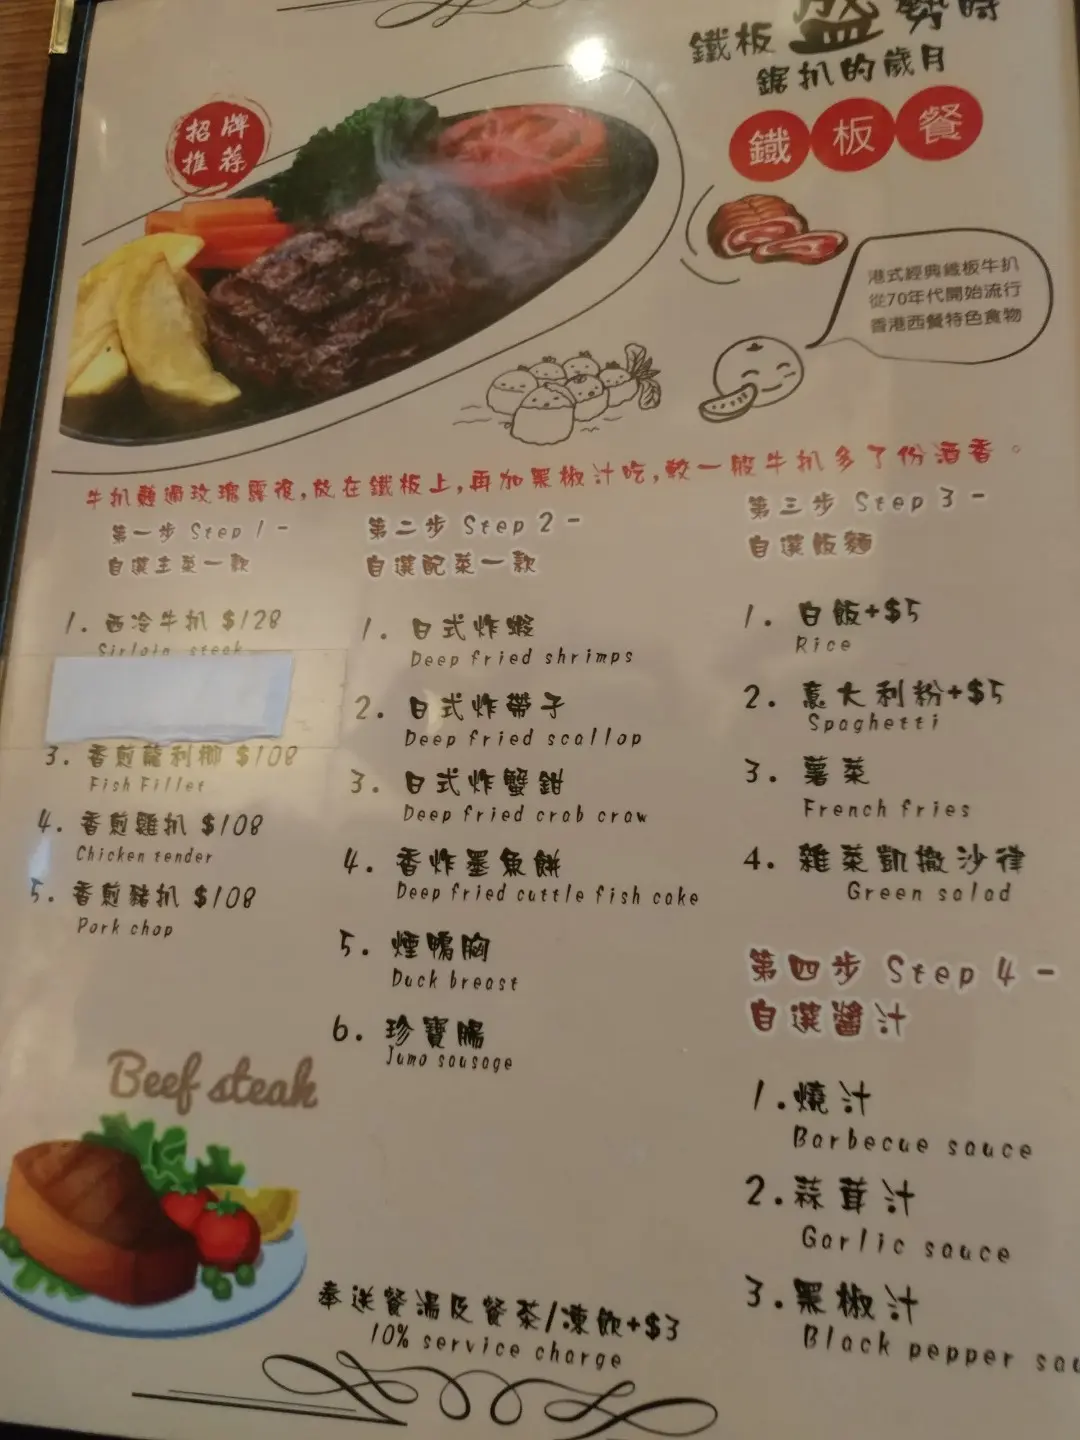 鐵板盛勢時
鋸扒的歲月
鐵板餐
招牌
推荐
港式經典鐵板牛扒
從70年代開始流行
香港西餐特色食物
牛扒麵過玫瑰露後,放在鐵板上,再加黑椒汁吃,較一般牛扒多了份酒香。
第一步 Step 1 -
自選主菜一款
1. 西冷牛扒 $128
Sirloin steak
3. 香煎龍利柳 $108
Fish Fillet
4. 香煎雞扒 $108
Chicken tender
5. 香煎豬扒 $108
Pork chop
第二步 Step 2 -
自選配菜一款
1. 日式炸蝦
Deep fried shrimps
2. 日式炸帶子
Deep fried scallop
3. 日式炸蟹鉗
Deep fried crab craw
4. 香炸墨魚餅
Deep fried cuttle fish cake
5. 煙鴨胸
Duck breast
6. 珍寶腸
Jumo sausage
第三步 Step 3 -
自選飯麵
1. 白飯+$5
Rice
2. 意大利粉+$5
Spaghetti
3. 薯菜
French fries
4. 雜菜凱撒沙律
Green salad
第四步 Step 4 -
自選醬汁
1. 燒汁
Barbecue sauce
2. 蒜茸汁
Garlic sauce
3. 黑椒汁
Black pepper sau
Beef steak
奉送餐湯及餐茶/凍飲+$3
10% service charge